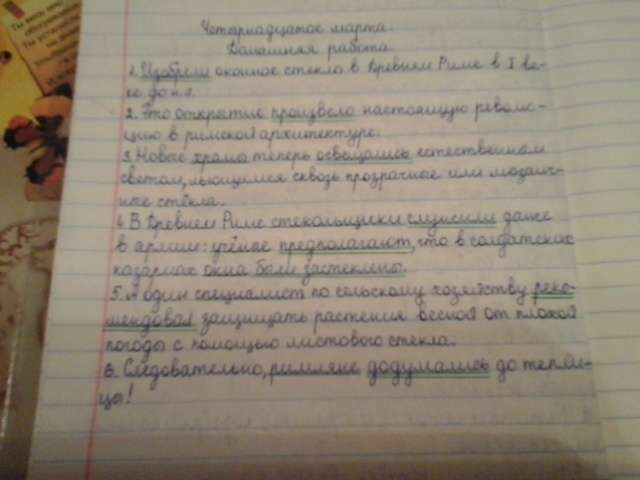 Четырнадцатое марта.
Домашняя работа
1. Изобрели оконное стекло в Древнем Риме в I ве-
ке до н.э.
2. Это открытие произвело настоящую револю-
цию в римской архитектуре.
3. Новые храмы теперь освещались естественным
светом, льющимся сквозь прозрачные или мозаич-
ные стёкла.
4. В Древнем Риме стекольщики служили даже
в армии: учёные предполагают, что в солдатских
казармах окна были застеклены.
5. А один специалист по сельскому хозяйству реко-
мендовал защищать растения весной от плохой
погоды с помощью листового стекла.
6. Следовательно, римляне додумались до тепли-
цы!